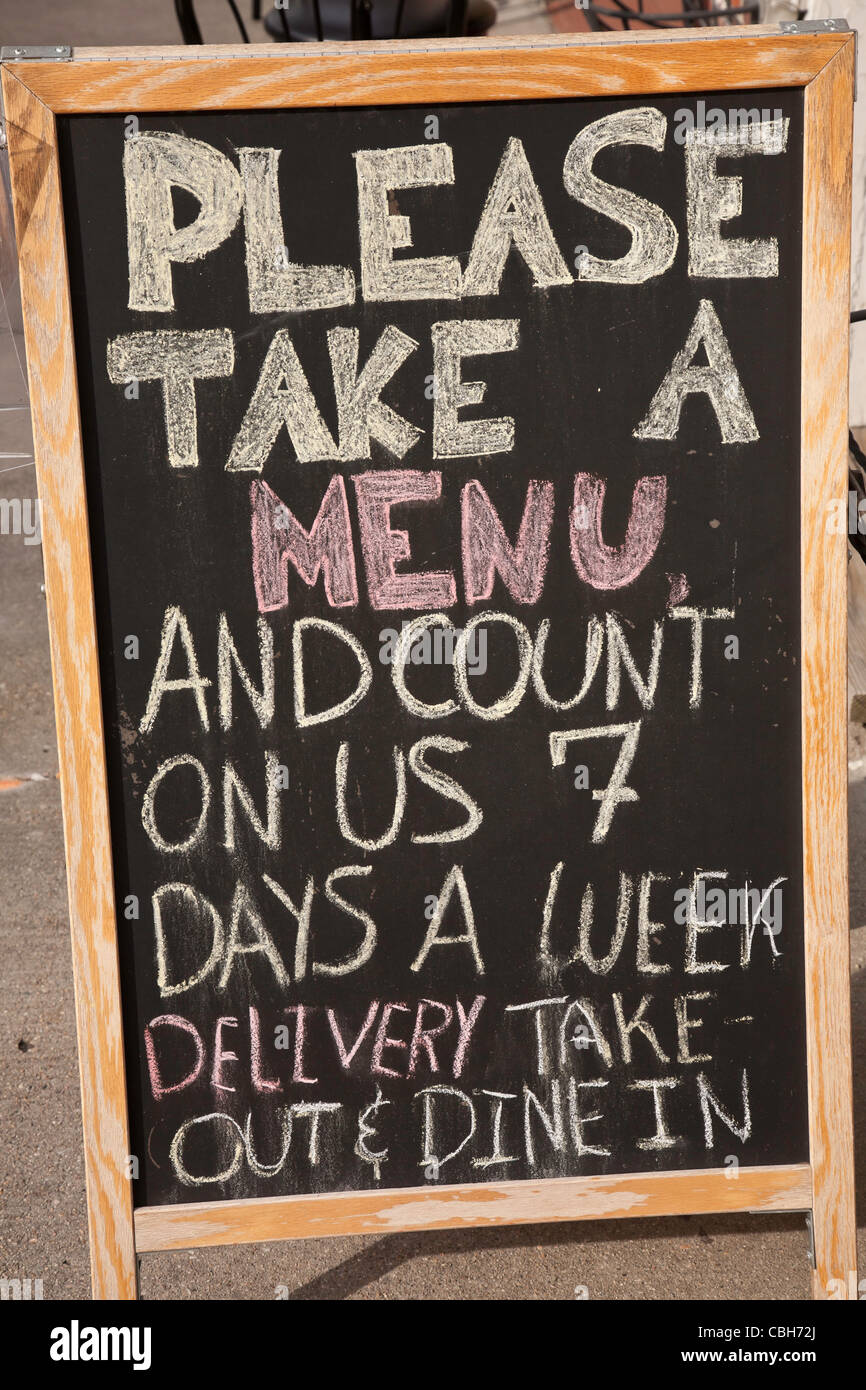 PLEASE
TAKE A
MENU,
AND COUNT
ON US 7
DAYS A WEEK
DELIVERY TAKE-
OUT & DINE IN
alamy
Image ID: CBH72J
www.alamy.com